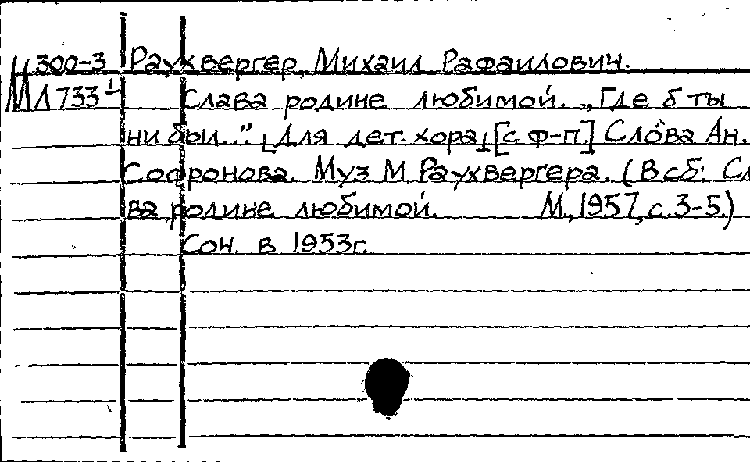 М 300-3 Раухвергер, Михаил Рафаилович.
Л 733 Слава родине любимой. „Где б ты
ни был..." [Для дет. хора] [с ф-п.] Слова Ан.
Софронова. Муз М. Раухвергера. (В сб: Сл
ва родине любимой. М., 1957, с. 3-5.)
Соч. в 1953г.